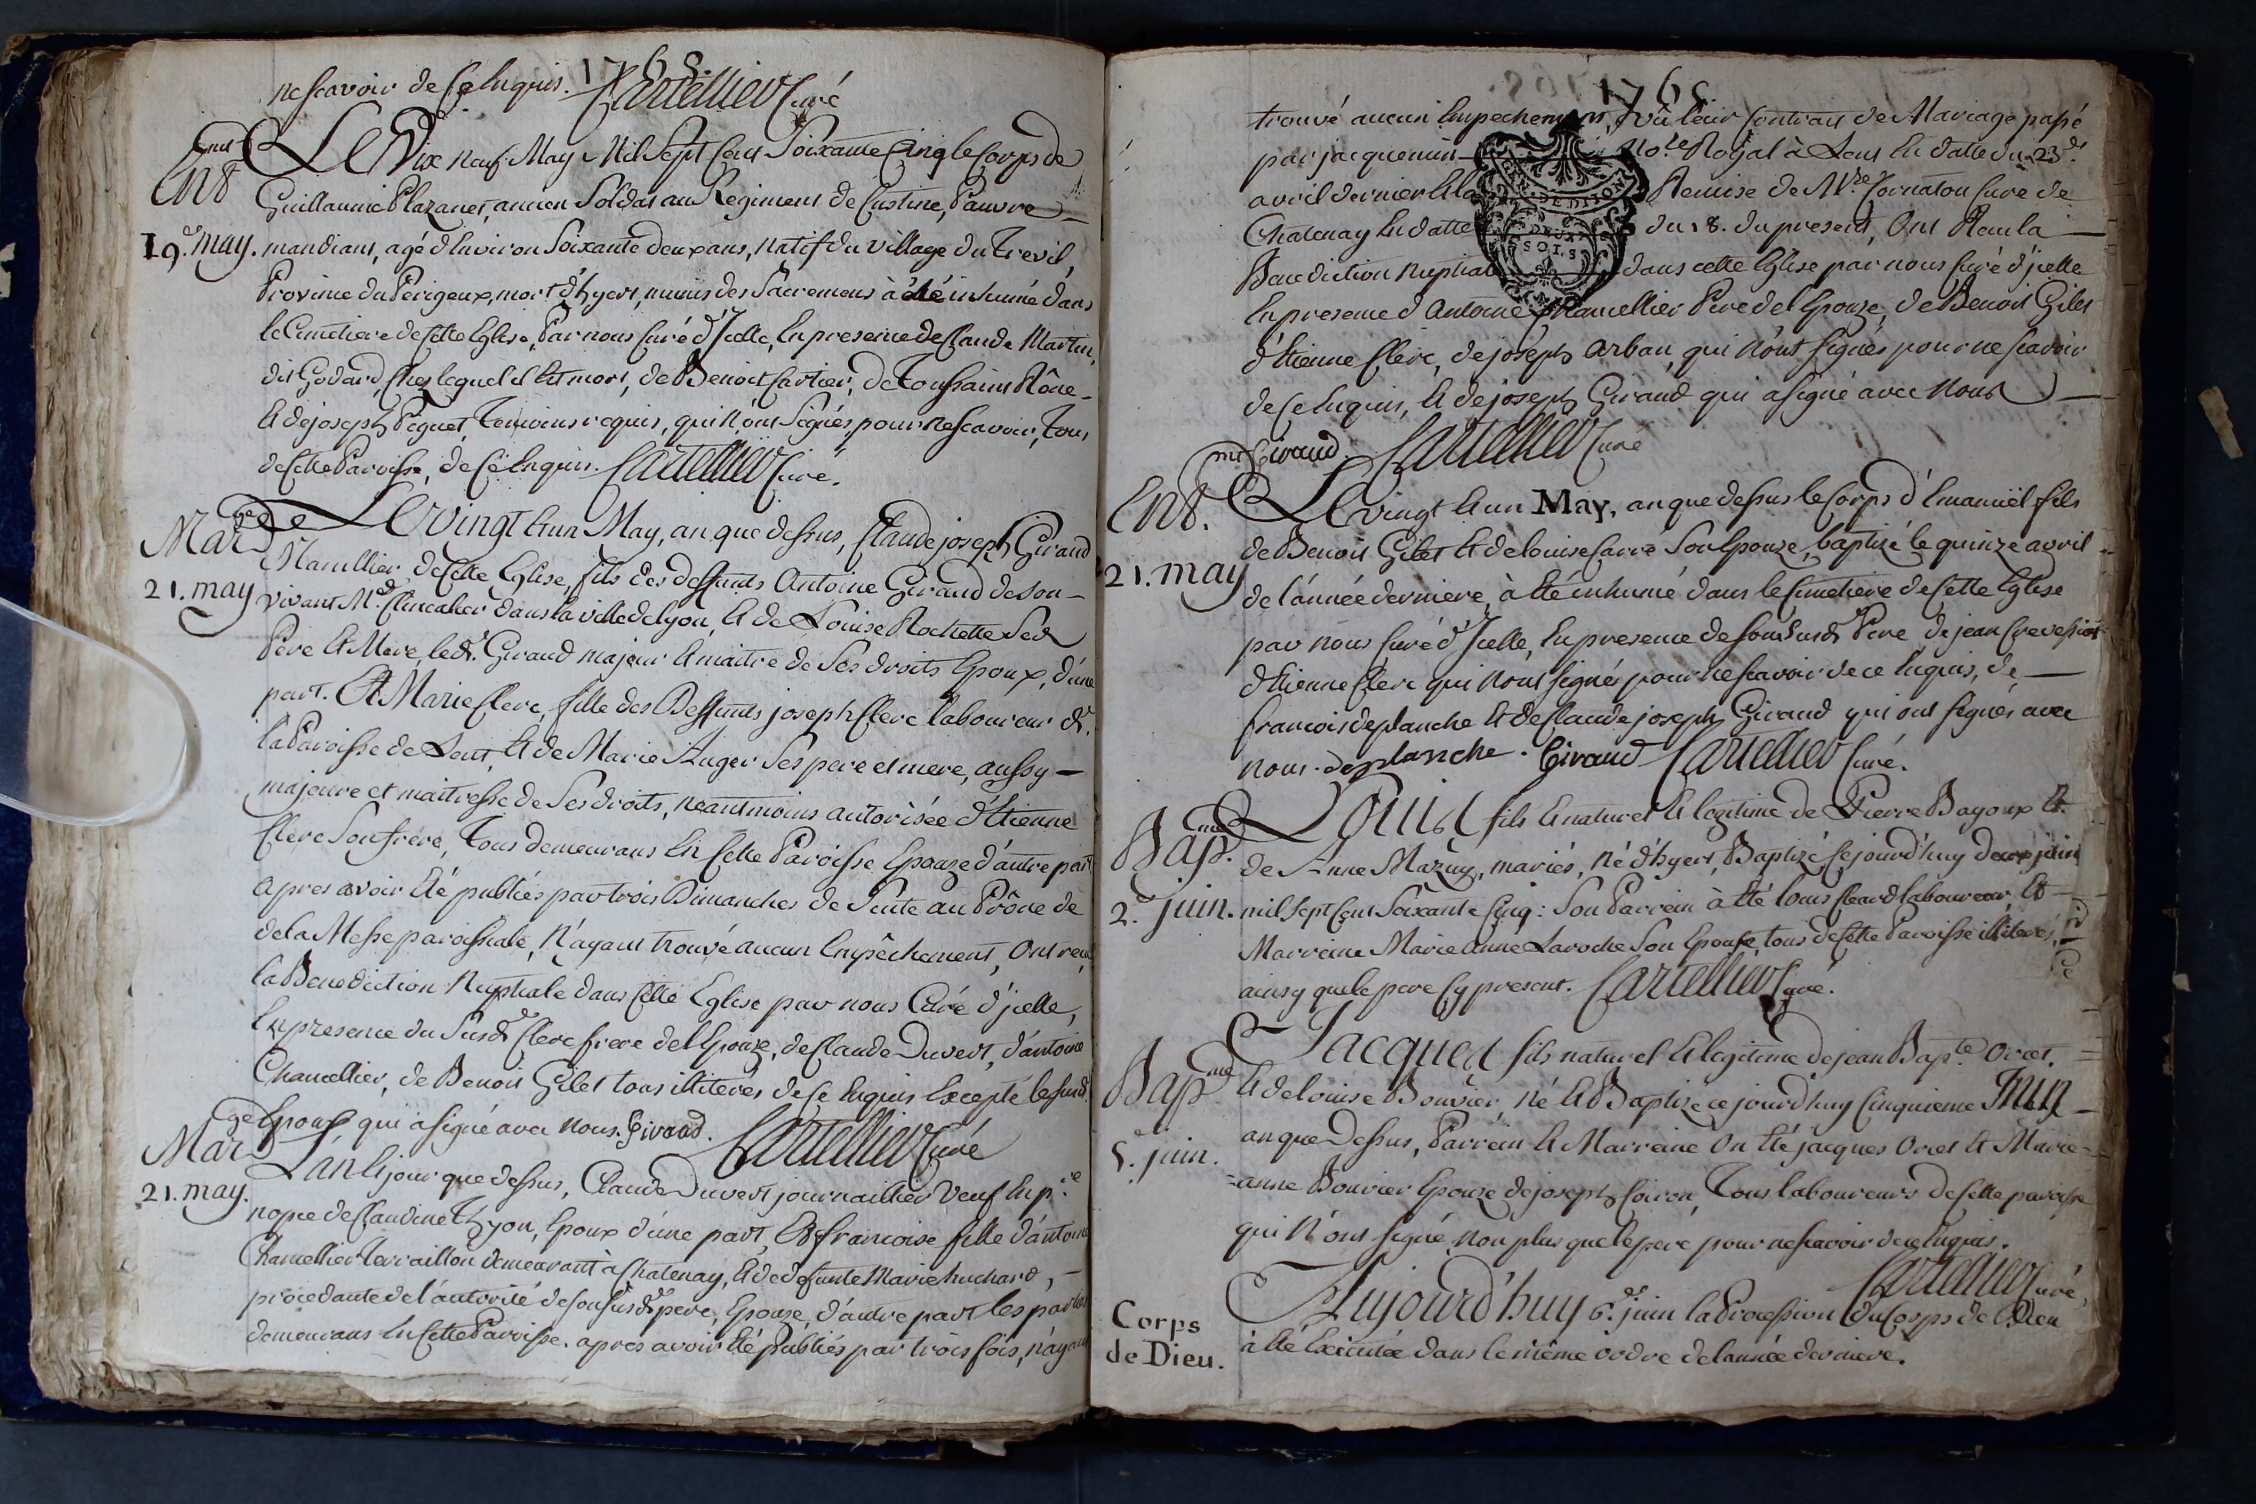 1765
ne scavoir de Ce Enquis. Cartellier Curé
Ent
19e may.
Le Dix neuf May Mil Sept Cent Soixante Cinq le Corps de
Guillaume Plazanet, ancien Soldat au Regiment de Custine, Pauvre
mandiant, agé d'Environ Soixante deux ans, natif du village du Trevil,
Province du Périgeux, mort d'hyert, munis des Sacremens à été inhumé dans
le Cimetiere de Cette Eglise, Par nous Curé d'Icelle, En presence de Claude Martin,
dit Godard, Chez lequel il Est mort, de Benoit Cartier, de Toussaint Rône
Et de joseph Peguet, Temoins requis, qui N'ont Signés, pour ne scavoir, Tous
de Cette Paroisse, de Ce Enquis. Cartellier Curé.
Marge
21. may
Le vingt Et un May, an que dessus, Claude joseph Girand
Marillier de Cette Eglise, fils des deffunts Antoine Girand de son
vivant Md. Clincalier dans la ville de Lyon, Et de Louise Rochette Ses
Père Et Mère, led. Girand majeur Et maitre de Ses droits Epoux, d'une
part. Et Marie Clerc, fille des Deffunts joseph Clerc laboureur de
la Paroisse de Lent, Et de Marie Auger Ses pere et mere, aussy
majeure et maitresse de Ses droits, neantmoins autorisée d'Etienne
Clerc Son frere, Tous demeurans En Cette Paroisse Epouze d'autre part
apres avoir Eté publiés par trois Dimanches de Suite au Prône de
de la Messe paroissiale, N'ayant trouvé aucun Empêchement, Ont recu
la Benediction Nuptiale dans Cette Eglise par nous Curé d'jcelle,
En presence du Susd. Clerc frere de l'Epouze, de Claude Duvert, d'antoine
Chamellier, de Benoit Gilet tous illiterés de Ce Enquis Excepté le susd.
Epoux qui à Signé avec nous. Giraud. Cartellier Curé
Marge
21. may.
L'an Et jour que dessus, Claude Duvert journaillier Veuf En pre
nopce de Claudine Thyon, Epoux d'une part, Et francoise fille d'antoine
Chamellier Terraillon demeurant à Chatenay, Et de defunte Marie huchard,
procedante de l'autorité de son Susd. pere, Epouze, d'autre part les parties
demeurans En Cette Paroisse. apres avoir Eté Publiés par trois fois, n'ayant
1765
trouvé aucun Empechement, Vû leur Contrait de Mariage passé
par jacquemin Nore Royal à Lent En datte du 23e
avril dernier Et la Remise de Mre Cornaton Curé de
Chatenay En datte du 18. du present, Ont Recu la
Benediction nuptiale dans cette Eglise par nous Curé d'jcelle
En presence d'Antoine Chamellier Pere de l'Epouze, de Benoit Gilet
d'Etienne Clerc, de joseph Arban, qui N'ont Signés pour ne scavoir
de Ce Enquis, Et de joseph Girand qui à signé avec Nous
Giraud. Cartellier Curé
GEN. DE DIJON
DEUX
SOLS
Ent.
21. may
Le vingt Et un May, an que dessus le Corps d'Emanuël fils
de Benoit Gilet Et de louise Carré Son Epouze, baptizé le quinze avril
de l'année derniere, à Eté inhumé dans le Cimetiere de Cette Eglise
par nous Curé d'Icelle, En presence de son Susd. Pere, de jean Crevessiot
d'Etienne Clerc qui N'ont signés pour ne scavoir de ce Enquis, de
francois deplanche Et de Claude joseph Girand qui ont signés avec
nous. deplanche. Giraud Cartellier Curé.
Bapme.
2e juin.
Louis fils Et naturel Et legitime de Pierre Bagoux Et
de Anne Mazuy, mariés, né d'hyert, Baptizé Cejourd'huy deux juin
mil Sept Cent Soixante Cinq: Son Parrein à Eté louis Cleard laboureur, Et
Marreine Marie Anne Laroche Son Epouse tous de Cette Paroisse illiterés,
ainsy que le pere Cy present. Cartellier Curé.
Bapme
5e juin.
Jacques fils naturel Et legitime de jean Bapte Orcet.
Et de louise Bouvier, Né Et Baptize ce jourd'huy Cinquieme Juin
an que Dessus, Parrein Et Marreine On Eté jacques Orcet Et Marie
anne Bouvier Epouze de joseph Coiron, Tous laboureurs de Cette paroisse
qui N'ont Signé, Non plus que le pere pour ne scavoir de ce Enquis.
Cartellier Curé,
Corps
de Dieu.
Aujourd'huy 6e juin la Procession du Corps de Dieu
à Eté Exécutée dans le même ordre de l'année derniere.